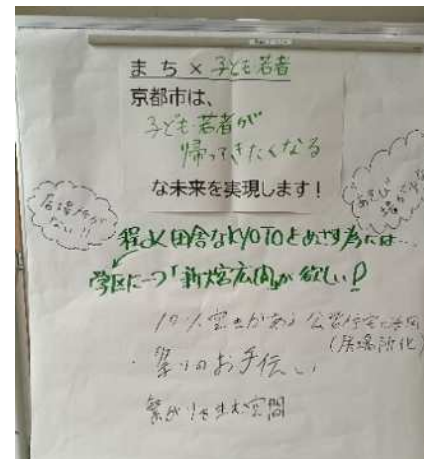 まち×子ども若者
京都市は、
子ども若者が
帰ってきたくなる
な未来を実現します！
居場所が
ない!!
あそび
場が
程よく田舎なKYOTOをめざす為には…
学区に一つ「新大宮広場」が欲しい！
公営住宅
(居場所化)
・祭りのお手伝い
繋がりを生む空間